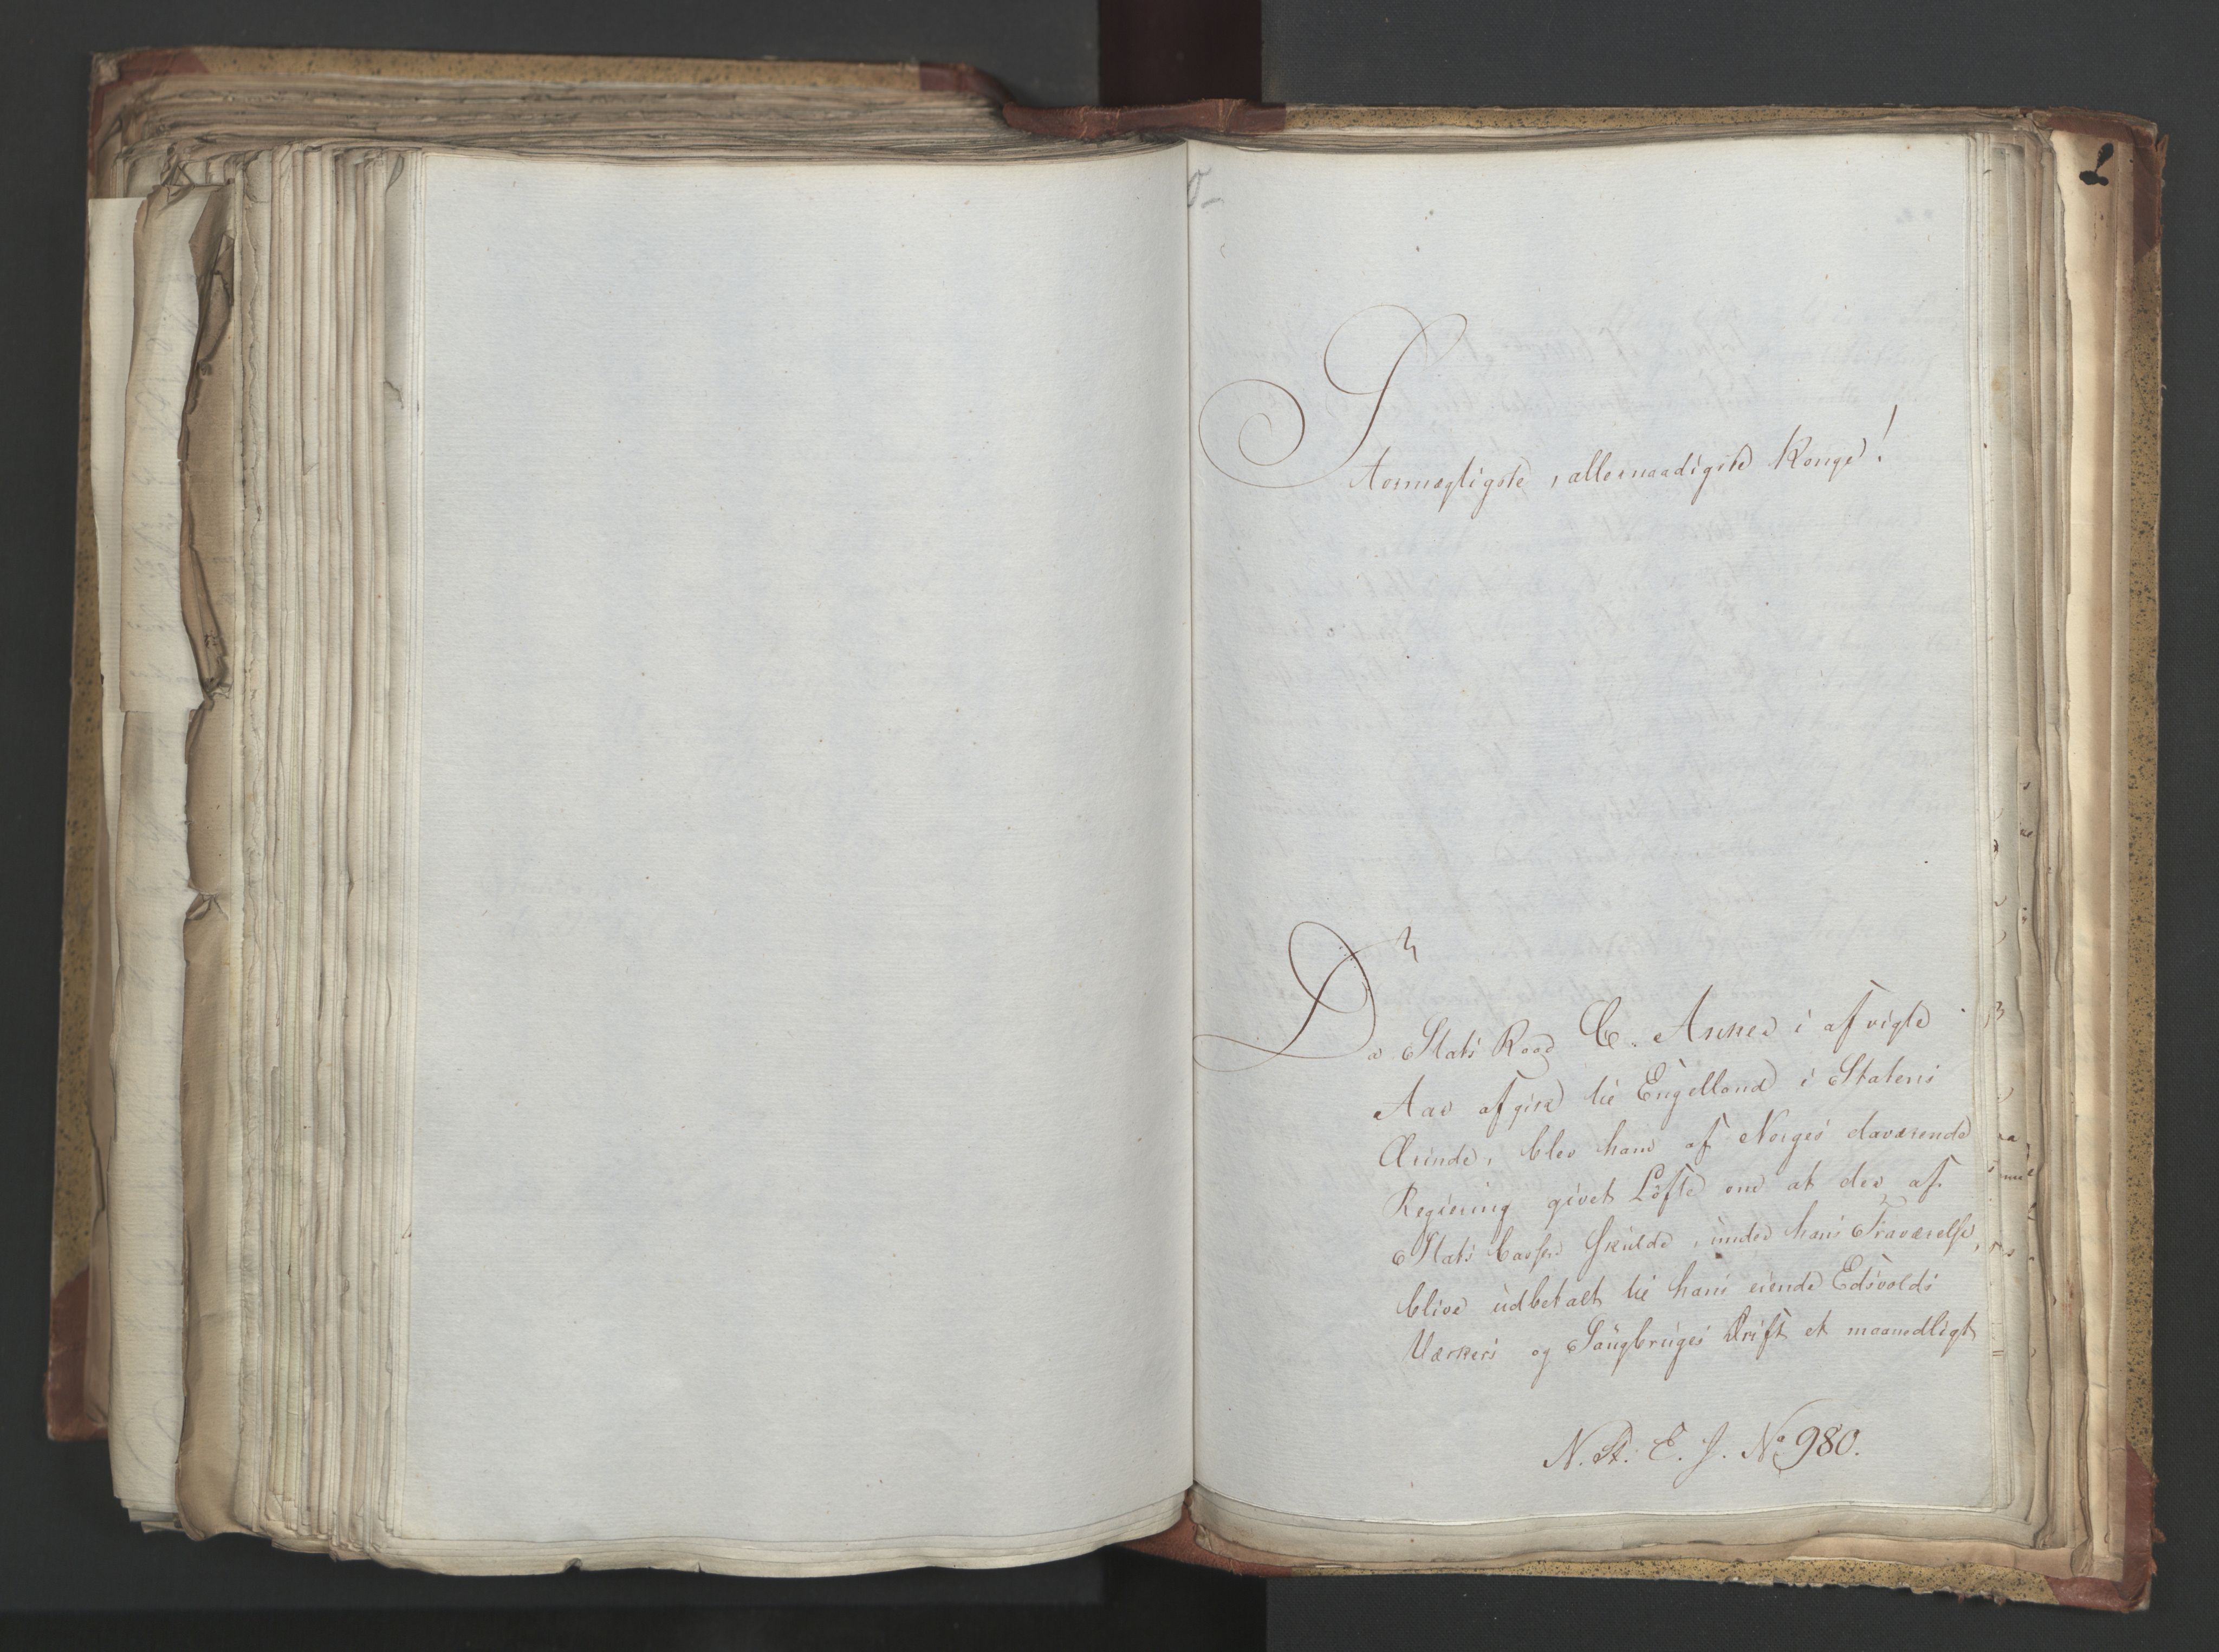 Stormægtigste, allernaadigste Konge!
Da Stats Raad C. Anker i afvigte
Aar afgik til Engelland i Statens
Ærinde, blev ham af Norges daværende
Regiering givet Løfte om at der af
Stats Cassen skulde, under hans Fraværelse,
blive udbetalt til hans eiende Edsvolds
Værkers og Saugbruges Drift et maanedligt
N. St. E. J. No 980.